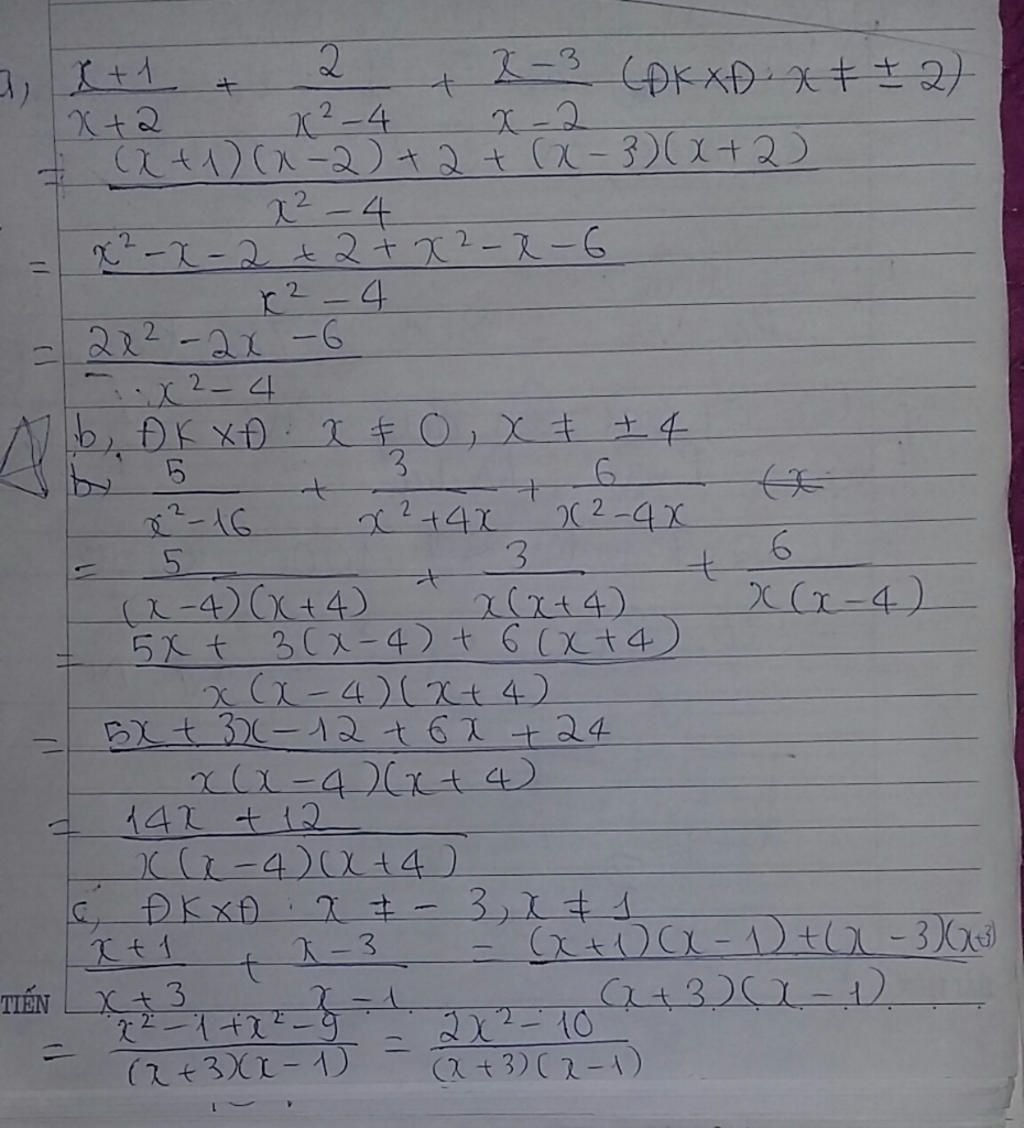 a, (x+1)/(x+2) + 2/(x²-4) + (x-3)/(x-2) (ĐKXĐ: x ≠ ±2)
= ((x+1)(x-2)+2+(x-3)(x+2))/(x²-4)
= (x²-x-2+2+x²-x-6)/(x²-4)
= (2x²-2x-6)/(x²-4)
b, ĐKXĐ: x ≠ 0, x ≠ ±4
b, 5/(x²-16) + 3/(x²+4x) + 6/(x²-4x) (x
= 5/((x-4)(x+4)) + 3/(x(x+4)) + 6/(x(x-4))
= (5x+3(x-4)+6(x+4))/(x(x-4)(x+4))
= (5x+3x-12+6x+24)/(x(x-4)(x+4))
= (14x+12)/(x(x-4)(x+4))
c, ĐKXĐ: x ≠ -3, x ≠ 1
(x+1)/(x+3) + (x-3)/(x-1) = ((x+1)(x-1)+(x-3)(x+3))/((x+3)(x-1))
TIẾN
= (x²-1+x²-9)/((x+3)(x-1)) = (2x²-10)/((x+3)(x-1))